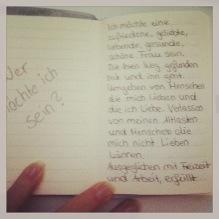 Wer
möchte ich
sein?
Ich möchte eine
zufriedene, geliebte,
liebende, gesunde,
schöne Frau sein.
Die ihren Weg gefunden
hat und ihn geht.
Umgeben von Menschen
die mich lieben und
die ich liebe. Verlassen
von meinen Altlasten
und Menschen die
mich nicht lieben
können.
Ausgeglichen mit Freizeit
und Arbeit, erfüllt...